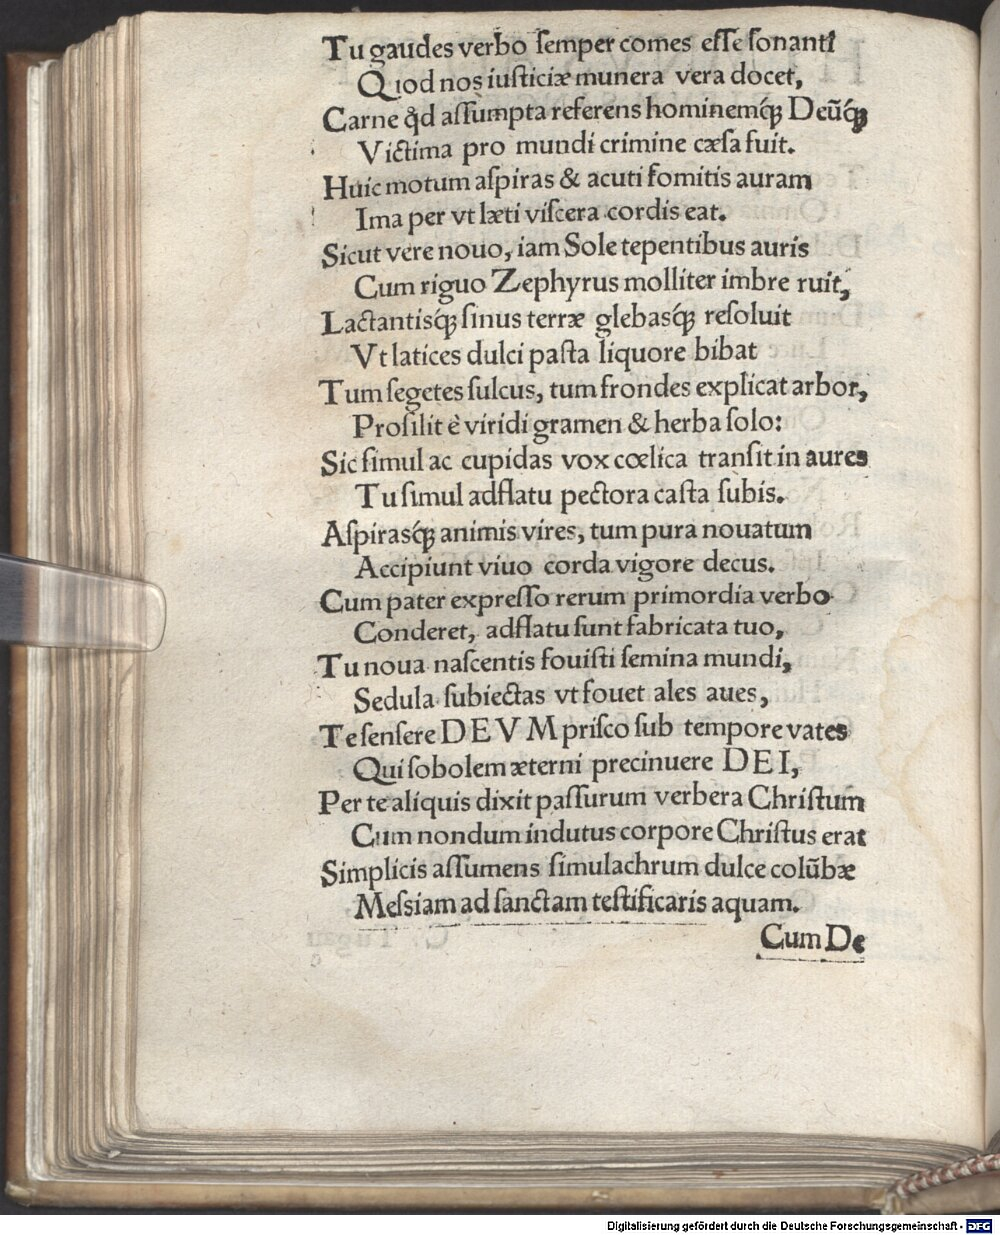 Tu gaudes verbo ſemper comes eſſe ſonanti
Quod nos iuſticiæ munera vera docet,
Carne qđ aſſumpta referens hominemq́ꝫ Deũq́ꝫ
Victima pro mundi crimine cæſa fuit.
Huic motum aſpiras & acuti fomitis auram
Ima per vt læti viſcera cordis eat.
Sicut vere nouo, iam Sole tepentibus auris
Cum riguo Zephyrus molliter imbre ruit,
Lactantisq́ꝫ ſinus terræ glebasq́ꝫ reſoluit
Vt latices dulci paſta liquore bibat
Tum ſegetes ſulcus, tum frondes explicat arbor,
Proſilit è viridi gramen & herba ſolo:
Sic ſimul ac cupidas vox cœlica tranſit in aures
Tu ſimul adflatu pectora caſta ſubis.
Aſpirasq́ꝫ animis vires, tum pura nouatum
Accipiunt viuo corda vigore decus.
Cum pater expreſſo rerum primordia verbo
Conderet, adflatu ſunt fabricata tuo,
Tu noua naſcentis fouiſti ſemina mundi,
Sedula ſubiectas vt fouet ales aues,
Te ſenſere DEVM priſco ſub tempore vates
Qui ſobolem æterni precinuere DEI,
Per te aliquis dixit paſſurum verbera Chriſtum
Cum nondum indutus corpore Chriſtus erat
Simplicis aſſumens ſimulachrum dulce colũbæ
Meſsiam ad ſanctam teſtificaris aquam.
Cum De
Digitalisierung gefördert durch die Deutsche Forschungsgemeinschaft - DFG